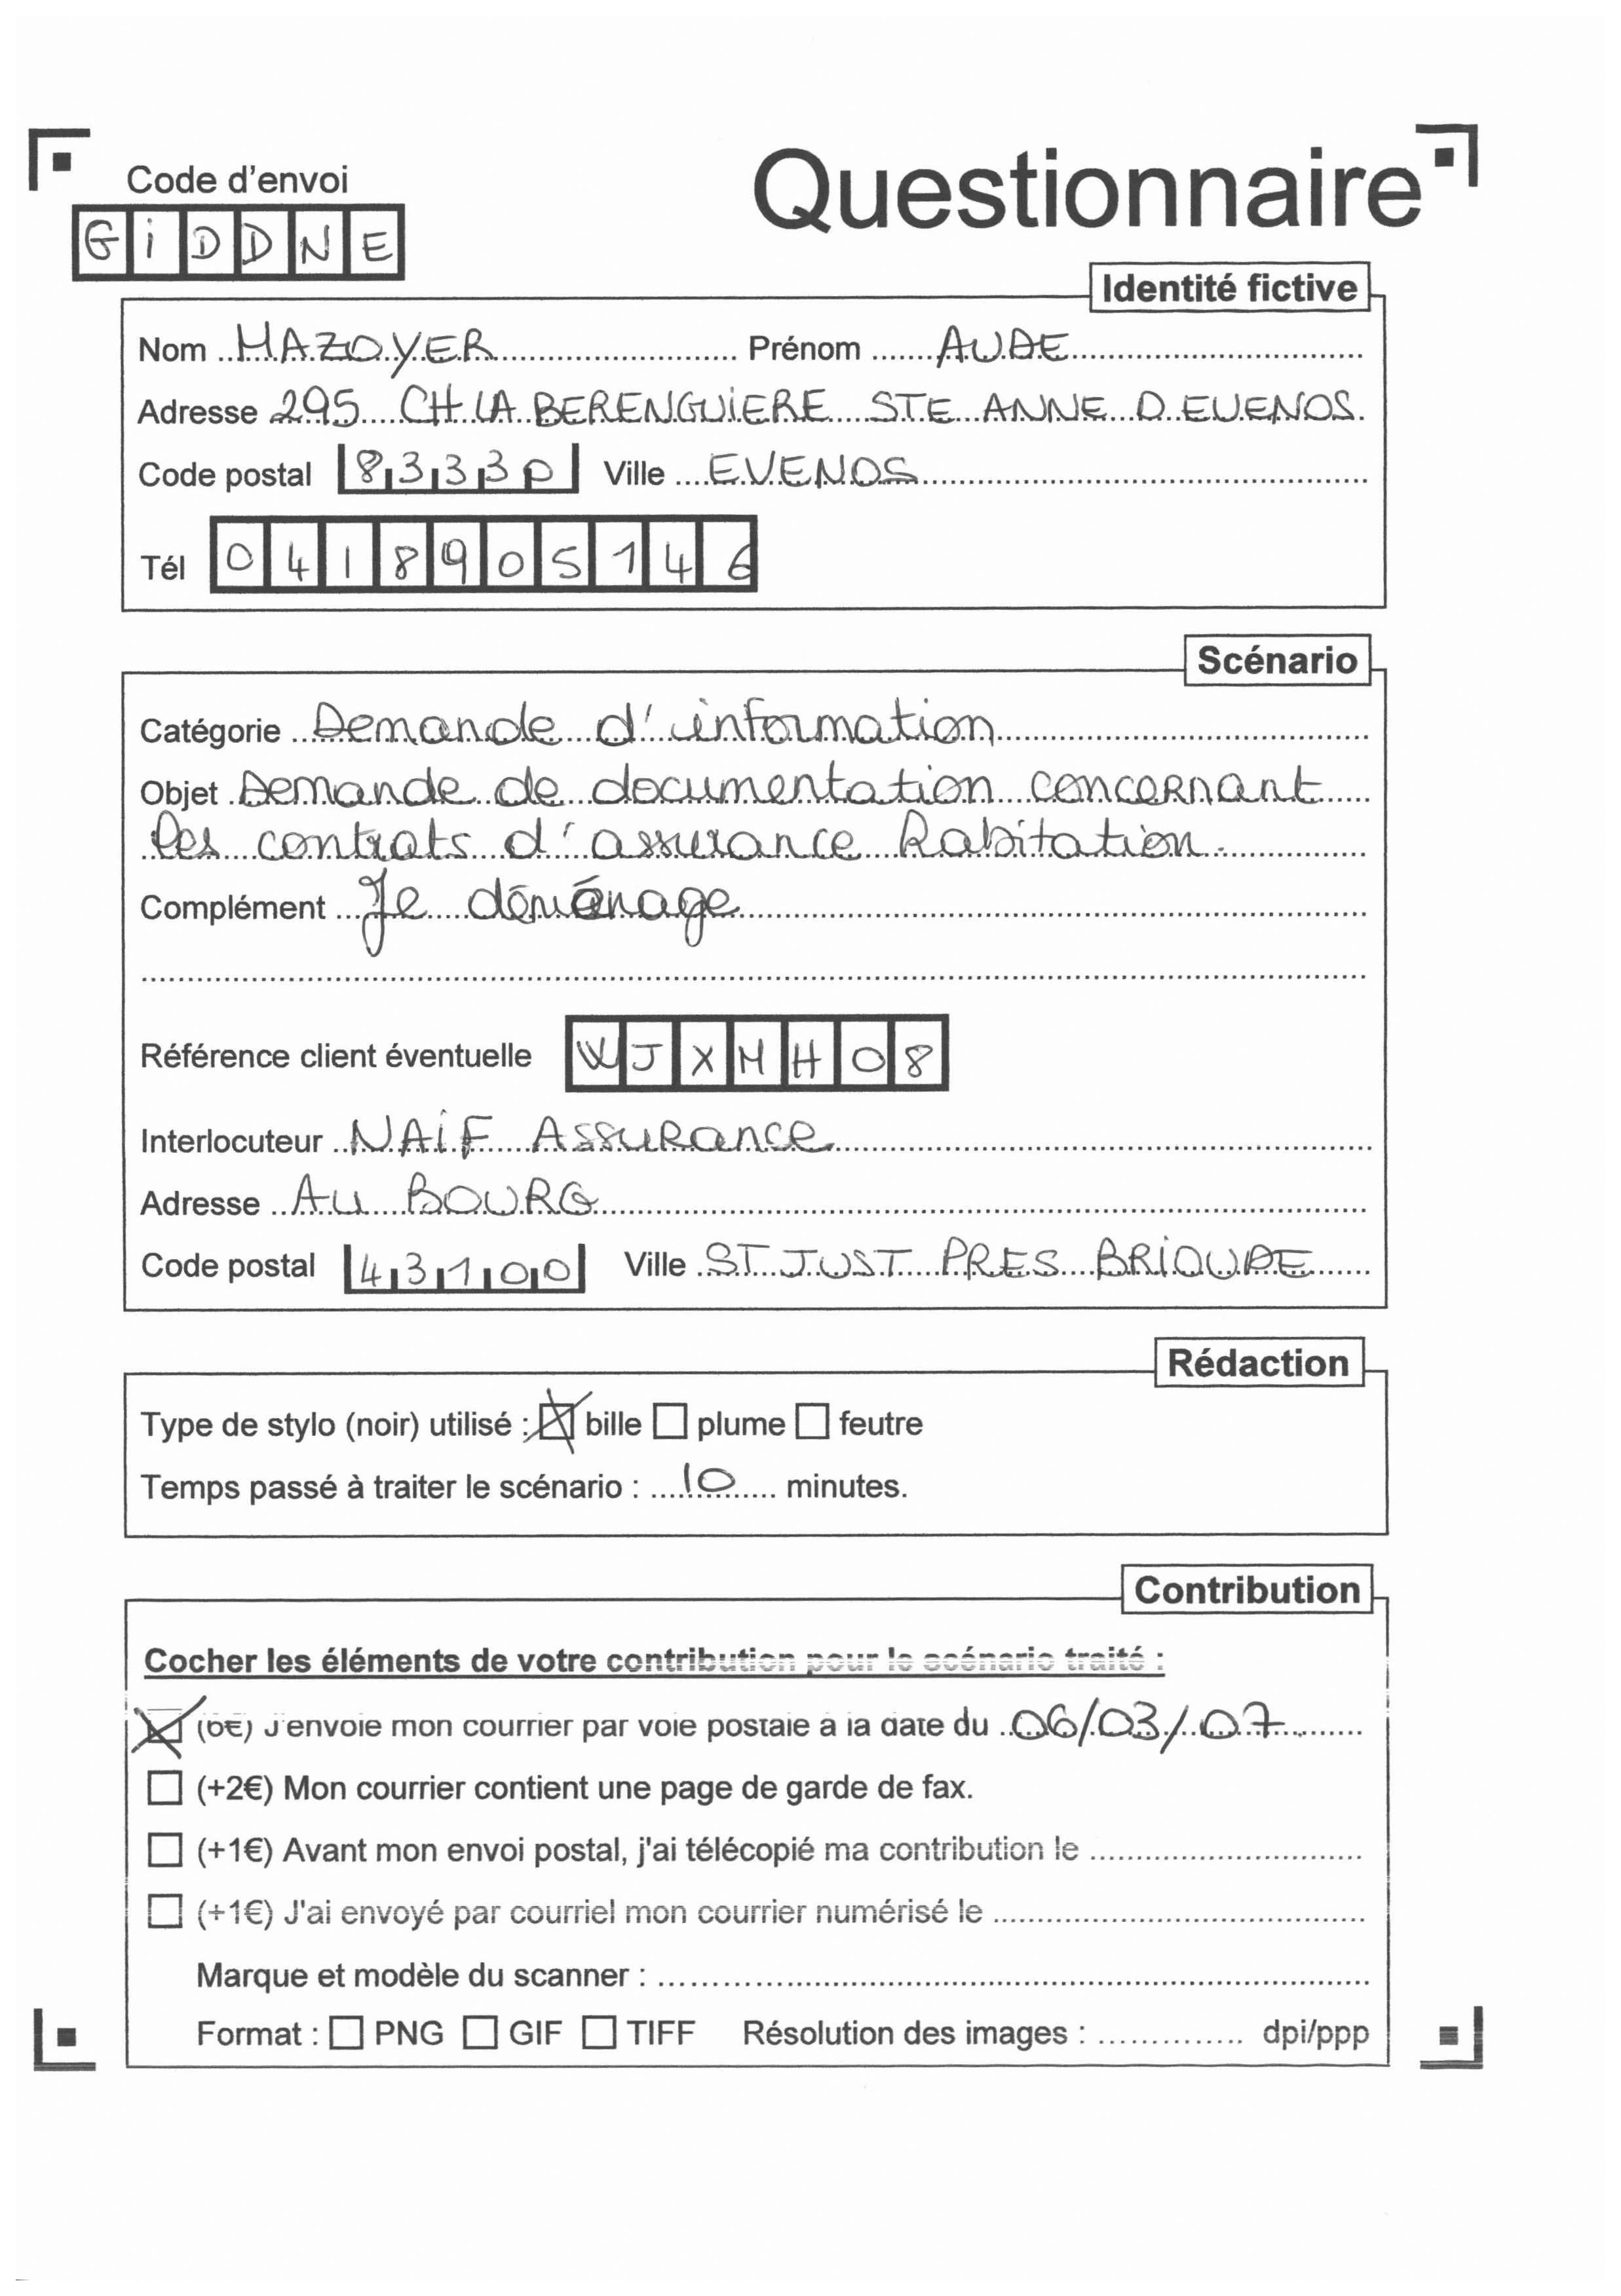 Questionnaire
Code d'envoi
GiDDNE
Identité fictive
Nom MAZOYER Prénom AUDE
Adresse 295 CH LA BERENGUiERE STE ANNE D EVENOS
Code postal 83330 Ville EVENOS
Tél 0418905146
Scénario
Catégorie Demande d'information
Objet Demande de documentation concernant
les contrats d'assurance habitation.
Complément Je déménage
Référence client éventuelle WJXMH08
Interlocuteur NAiF Assurance
Adresse Au BOURG
Code postal 43100 Ville ST JUST PRES BRiOUDE
Rédaction
Type de stylo (noir) utilisé : bille plume feutre
Temps passé à traiter le scénario : 10 minutes.
Contribution
Cocher les éléments de votre contribution pour le scénario traité :
(6€) J'envoie mon courrier par voie postale à la date du 06/03/07
(+2€) Mon courrier contient une page de garde de fax.
(+1€) Avant mon envoi postal, j'ai télécopié ma contribution le
(+1€) J'ai envoyé par courriel mon courrier numérisé le
Marque et modèle du scanner :
Format : PNG GIF TIFF Résolution des images : dpi/ppp